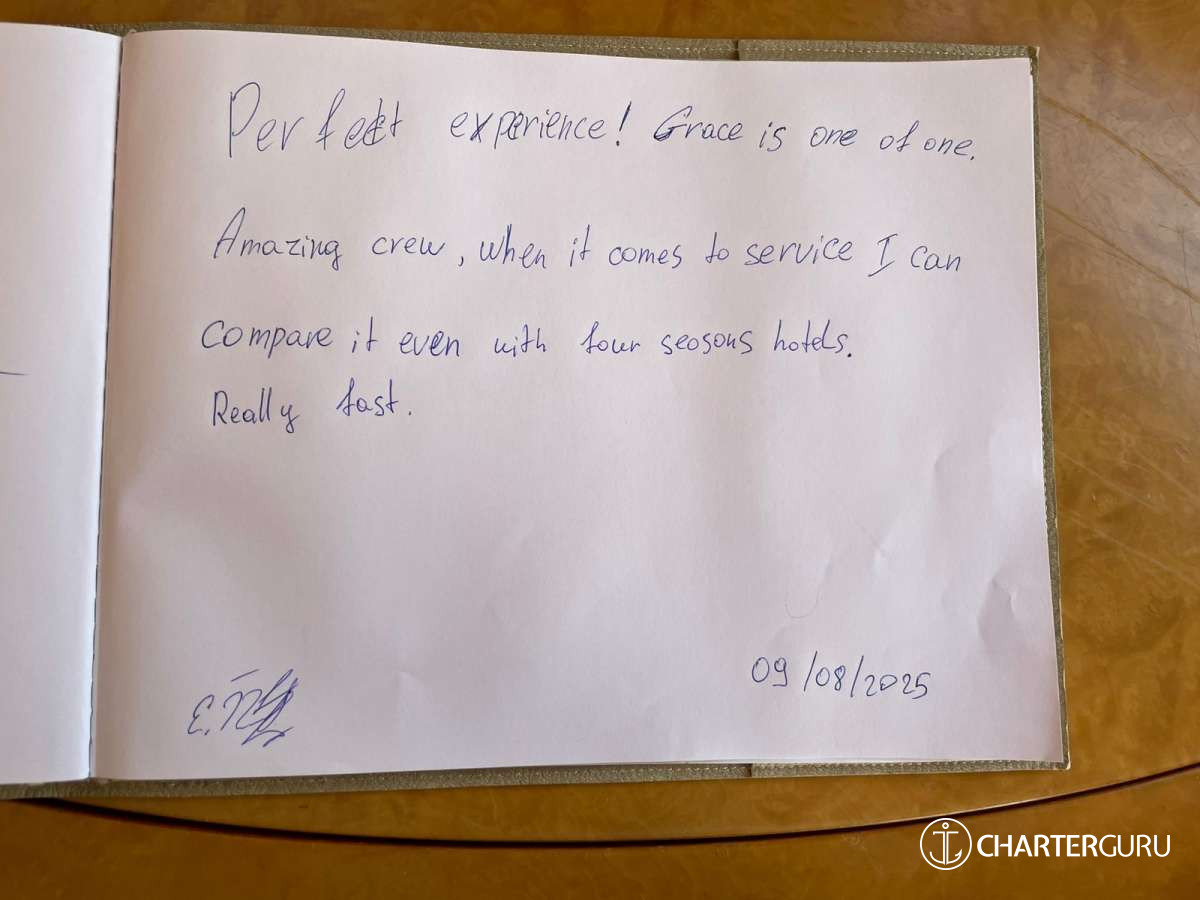 Perfect experience! Grace is one of one.
Amazing crew, when it comes to service I can
compare it even with four seosons hotels.
Really fast.
09/08/2025
CHARTERGURU